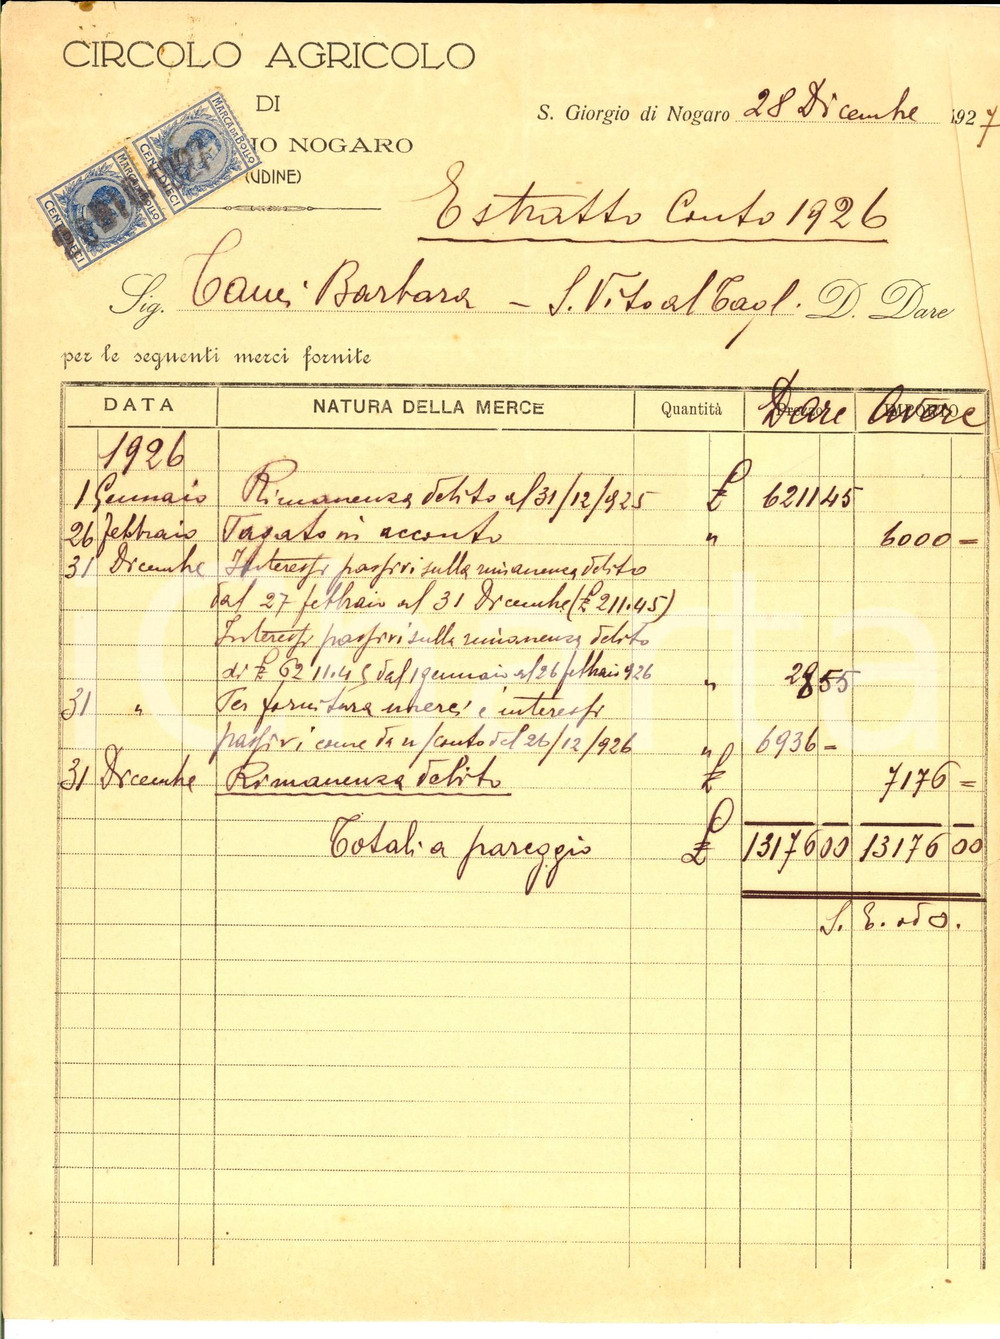 CIRCOLO AGRICOLO
DI
IO NOGARO
(UDINE)
MARCA DA BOLLO
CENT. DIECI
MARCA DA BOLLO
CENT. DIECI
S. Giorgio di Nogaro 28 Dicembre 1927
Estratto Conto 1926
Sig. Barbara - S. Vito al Tagl. D. Dare
per le seguenti merci fornite
DATA NATURA DELLA MERCE Quantità Prezzo Dare IMPORTO Avere
1926
1 Gennaio Rimanenza debito al 31/12/925 £ 6211 45
26 febbraio Pagato in acconto " 6000 =
31 Dicembre Interessi passivi sulla rimanenza debito
dal 27 febbraio al 31 Dicembre (£ 211.45)
Interessi passivi sulla rimanenza debito
di £ 6211.45 dal 1 gennaio al 26 febbraio 926 " 28 55
31 " Per fornitura merci e interessi
passivi come da n/conto del 26/12/926 " 6936 =
31 Dicembre Rimanenza debito £ 7176 =
Totali a pareggio £ 13176 00 13176 00
S. E. od O.